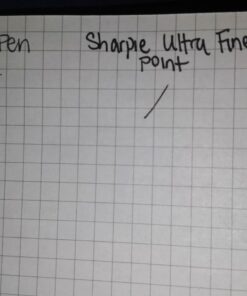 Pen Sharpie Ultra Fine
Point